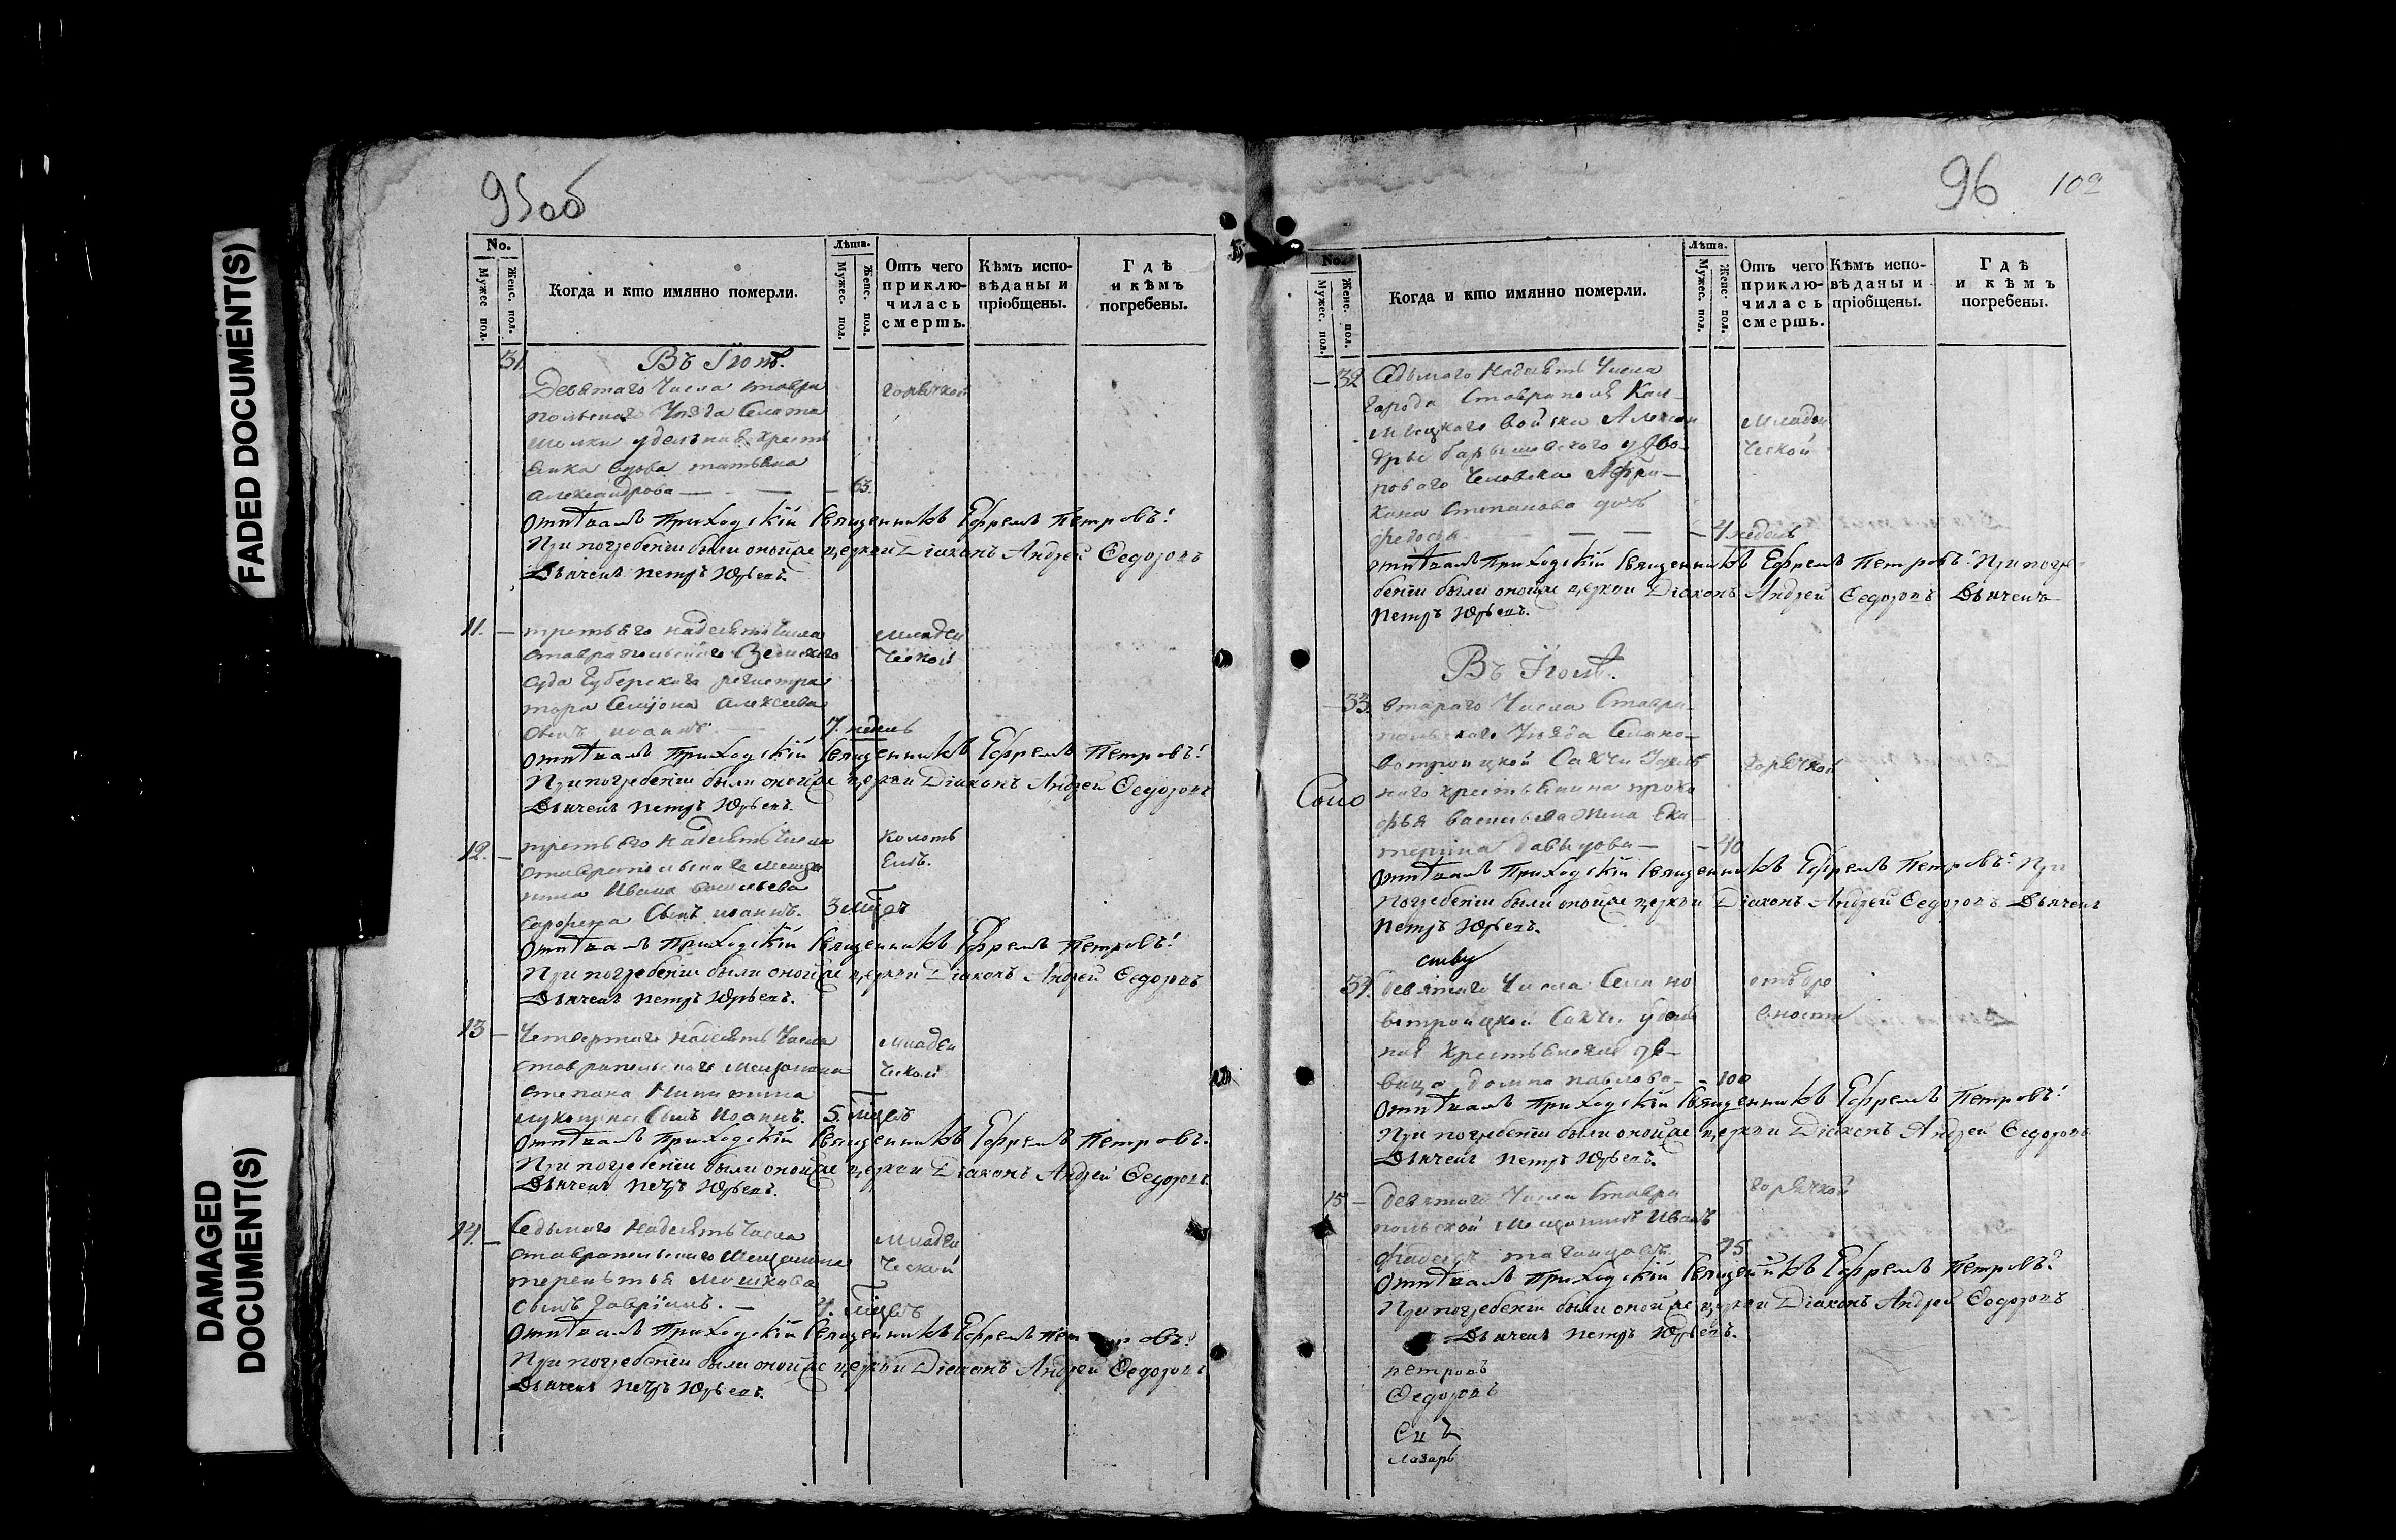 FADED DOCUMENT(S)
DAMAGED
DOCUMENT(S)
95об
No.
Мужес. пол.
Женс. пол.
Когда и кто имянно померли.
Лѣта.
Мужес. пол.
Женс. пол.
Отъ чего приключилась смерть.
Кѣмъ исповѣданы и пріобщены.
Гдѣ и кѣмъ погребены.
31.
Девятаго Числа ставро
горячкой
польскаго Уезда Села
вдова татьяна
Александрова — 63.
отпѣвалъ Приходскій Священникъ Ефремъ Петровъ:
При погребеніи были оной же церкви Діаконъ Андрей Ѳедоровъ
Дьячекъ Петръ Юрьевъ.
11. — третьяго надесять Числа
младен
ставропольскаго Земскаго
ческой
суда Губерскаго регистра
тора Семіона Алексеева
сынъ иоаннъ. 7. недель
отпѣвалъ Приходскій Священникъ Ефремъ Петровъ:
При погребеніи были оной же церкви Діаконъ Андрей Ѳедоровъ
Дьячекъ Петръ Юрьевъ.
12. — третьяго надесять Числа
колоть
ставропольскаго мещан
емъ.
нина Ивана васильева
Сынъ иоаннъ. 3 мцъ
отпѣвалъ Приходскій Священникъ Ефремъ Петровъ:
При погребеніи были оной же церкви Діаконъ Андрей Ѳедоровъ
Дьячекъ Петръ Юрьевъ.
13 — Четвертаго надесять Числа
младен
ставропольскаго мещанина
ческой
степана Никитина
Сынъ Иоаннъ. 5. мцвъ
отпѣвалъ Приходскій Священникъ Ефремъ Петровъ.
При погребеніи были оной же церкви Діаконъ Андрей Ѳедоровъ.
Дьячекъ Петръ Юрьевъ.
14. — Седьмаго надесять Числа
младен
ставропольскаго мещанина
ческой
терентья мошкова
сынъ Гавріилъ. — мцвъ
отпѣвалъ Приходскій Священникъ Ефремъ Петровъ:
При погребеніи были оной же церкви Діаконъ Андрей Ѳедоровъ
Дьячекъ Петръ Юрьевъ.
96
102
No.
Мужес. пол.
Женс. пол.
Когда и кто имянно померли.
Лѣта.
Мужес. пол.
Женс. пол.
Отъ чего приключилась смерть.
Кѣмъ исповѣданы и пріобщены.
Гдѣ и кѣмъ погребены.
— 32 Седьмаго надесять Числа
города Ставрополя Кал-
мыцкаго войска Алексан
младен
дры барышевскаго дво-
ческой
роваго Человека Афри-
кана степанова дочь
федосья — недель
отпѣвалъ Приходскій Священникъ Ефремъ Петровъ: При погре-
беніи были оной же церкви Діаконъ Андрей Ѳедоровъ Дьячекъ
Петръ Юрьевъ.
33. втараго Числа Ставро-
польскаго Уезда Села но-
вотроицкой Сахчи Удель
горячкой
наго крестьянина проко
фья васильева жена Ека
терина давыдова — 40
отпѣвалъ Приходскій Священникъ Ефремъ Петровъ: При
Погребеніи были оной же церкви Діаконъ Андрей Ѳедоровъ Дьячекъ
Петръ Юрьевъ.
34. девятаго Числа Села но
отъ дре
вотроицкой Сахчи удель
вности
ная крестьянская де-
вица домна павлова — 100
отпѣвалъ Приходскій Священникъ Ефремъ Петровъ:
При погребеніи были оной же церкви Діаконъ Андрей Ѳедоровъ
Дьячекъ Петръ Юрьевъ.
15 — девятаго Числа Ставро
горячкой
польской мещанинъ Иванъ
отпѣвалъ Приходскій Священникъ Ефремъ Петровъ:
При погребеніи были оной же церкви Діаконъ Андрей Ѳедоровъ
Дьячекъ Петръ Юрьевъ.
петровъ
Ѳедоровъ
Лазарь